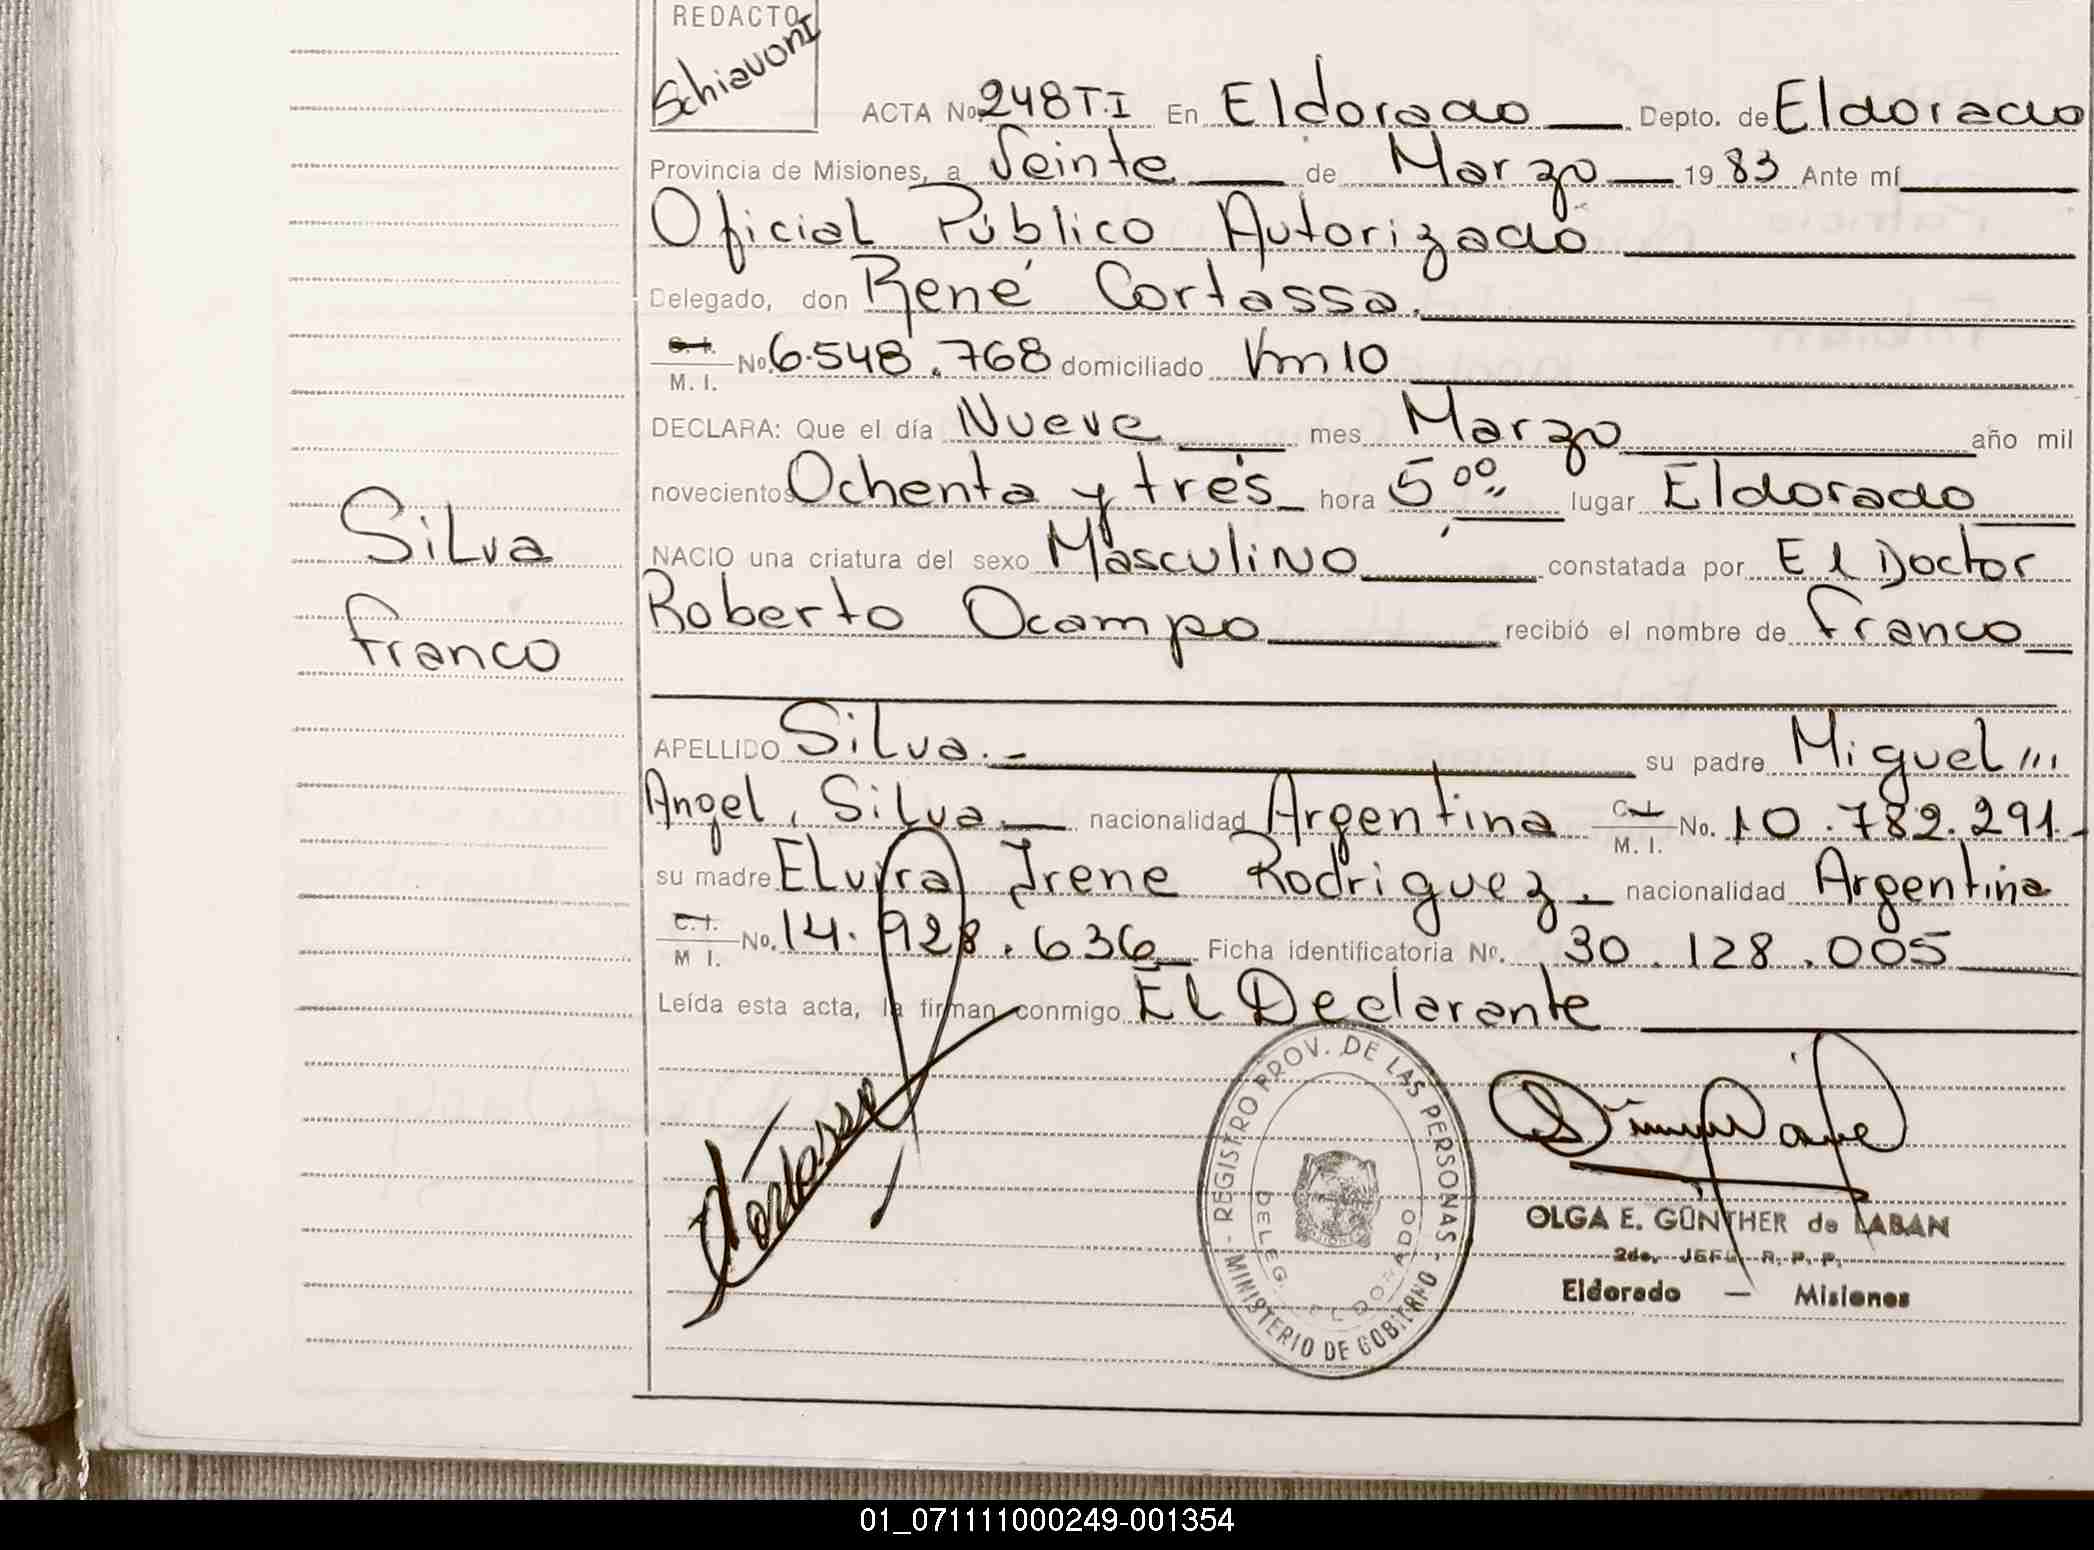 REDACTO
Schiavoni
ACTA No. 248 T.I En Eldorado Depto. de Eldorado
Provincia de Misiones, a Veinte de Marzo 1983 Ante mí
Oficial Público Autorizado
Delegado, don René Cortassa.
C. I.
M. I. No. 6.548.768 domiciliado Km 10
DECLARA: Que el día Nueve mes Marzo año mil
novecientos Ochenta y trés hora 5 00 lugar Eldorado
Silva
NACIO una criatura del sexo Masculino constatada por El Doctor
Franco
Roberto Ocampo recibió el nombre de Franco
APELLIDO Silva.- su padre Miguel
Angel, Silva. nacionalidad Argentina C.I. M. I. No. 10.782.291.-
su madre Elvira Irene Rodriguez. nacionalidad Argentina
C.I.
M I. No. 14.928.636 Ficha identificatoria No. 30.128.005
Leída esta acta, la firman conmigo El Declarante
Cortassa
- REGISTRO PROV. DE LAS PERSONAS - MINISTERIO DE GOBIERNO
DELEG. ELDORADO
OLGA E. GÜNTHER de LABAN
2do. JEFE R. P. P.
Eldorado — Misiones
01_071111000249-001354